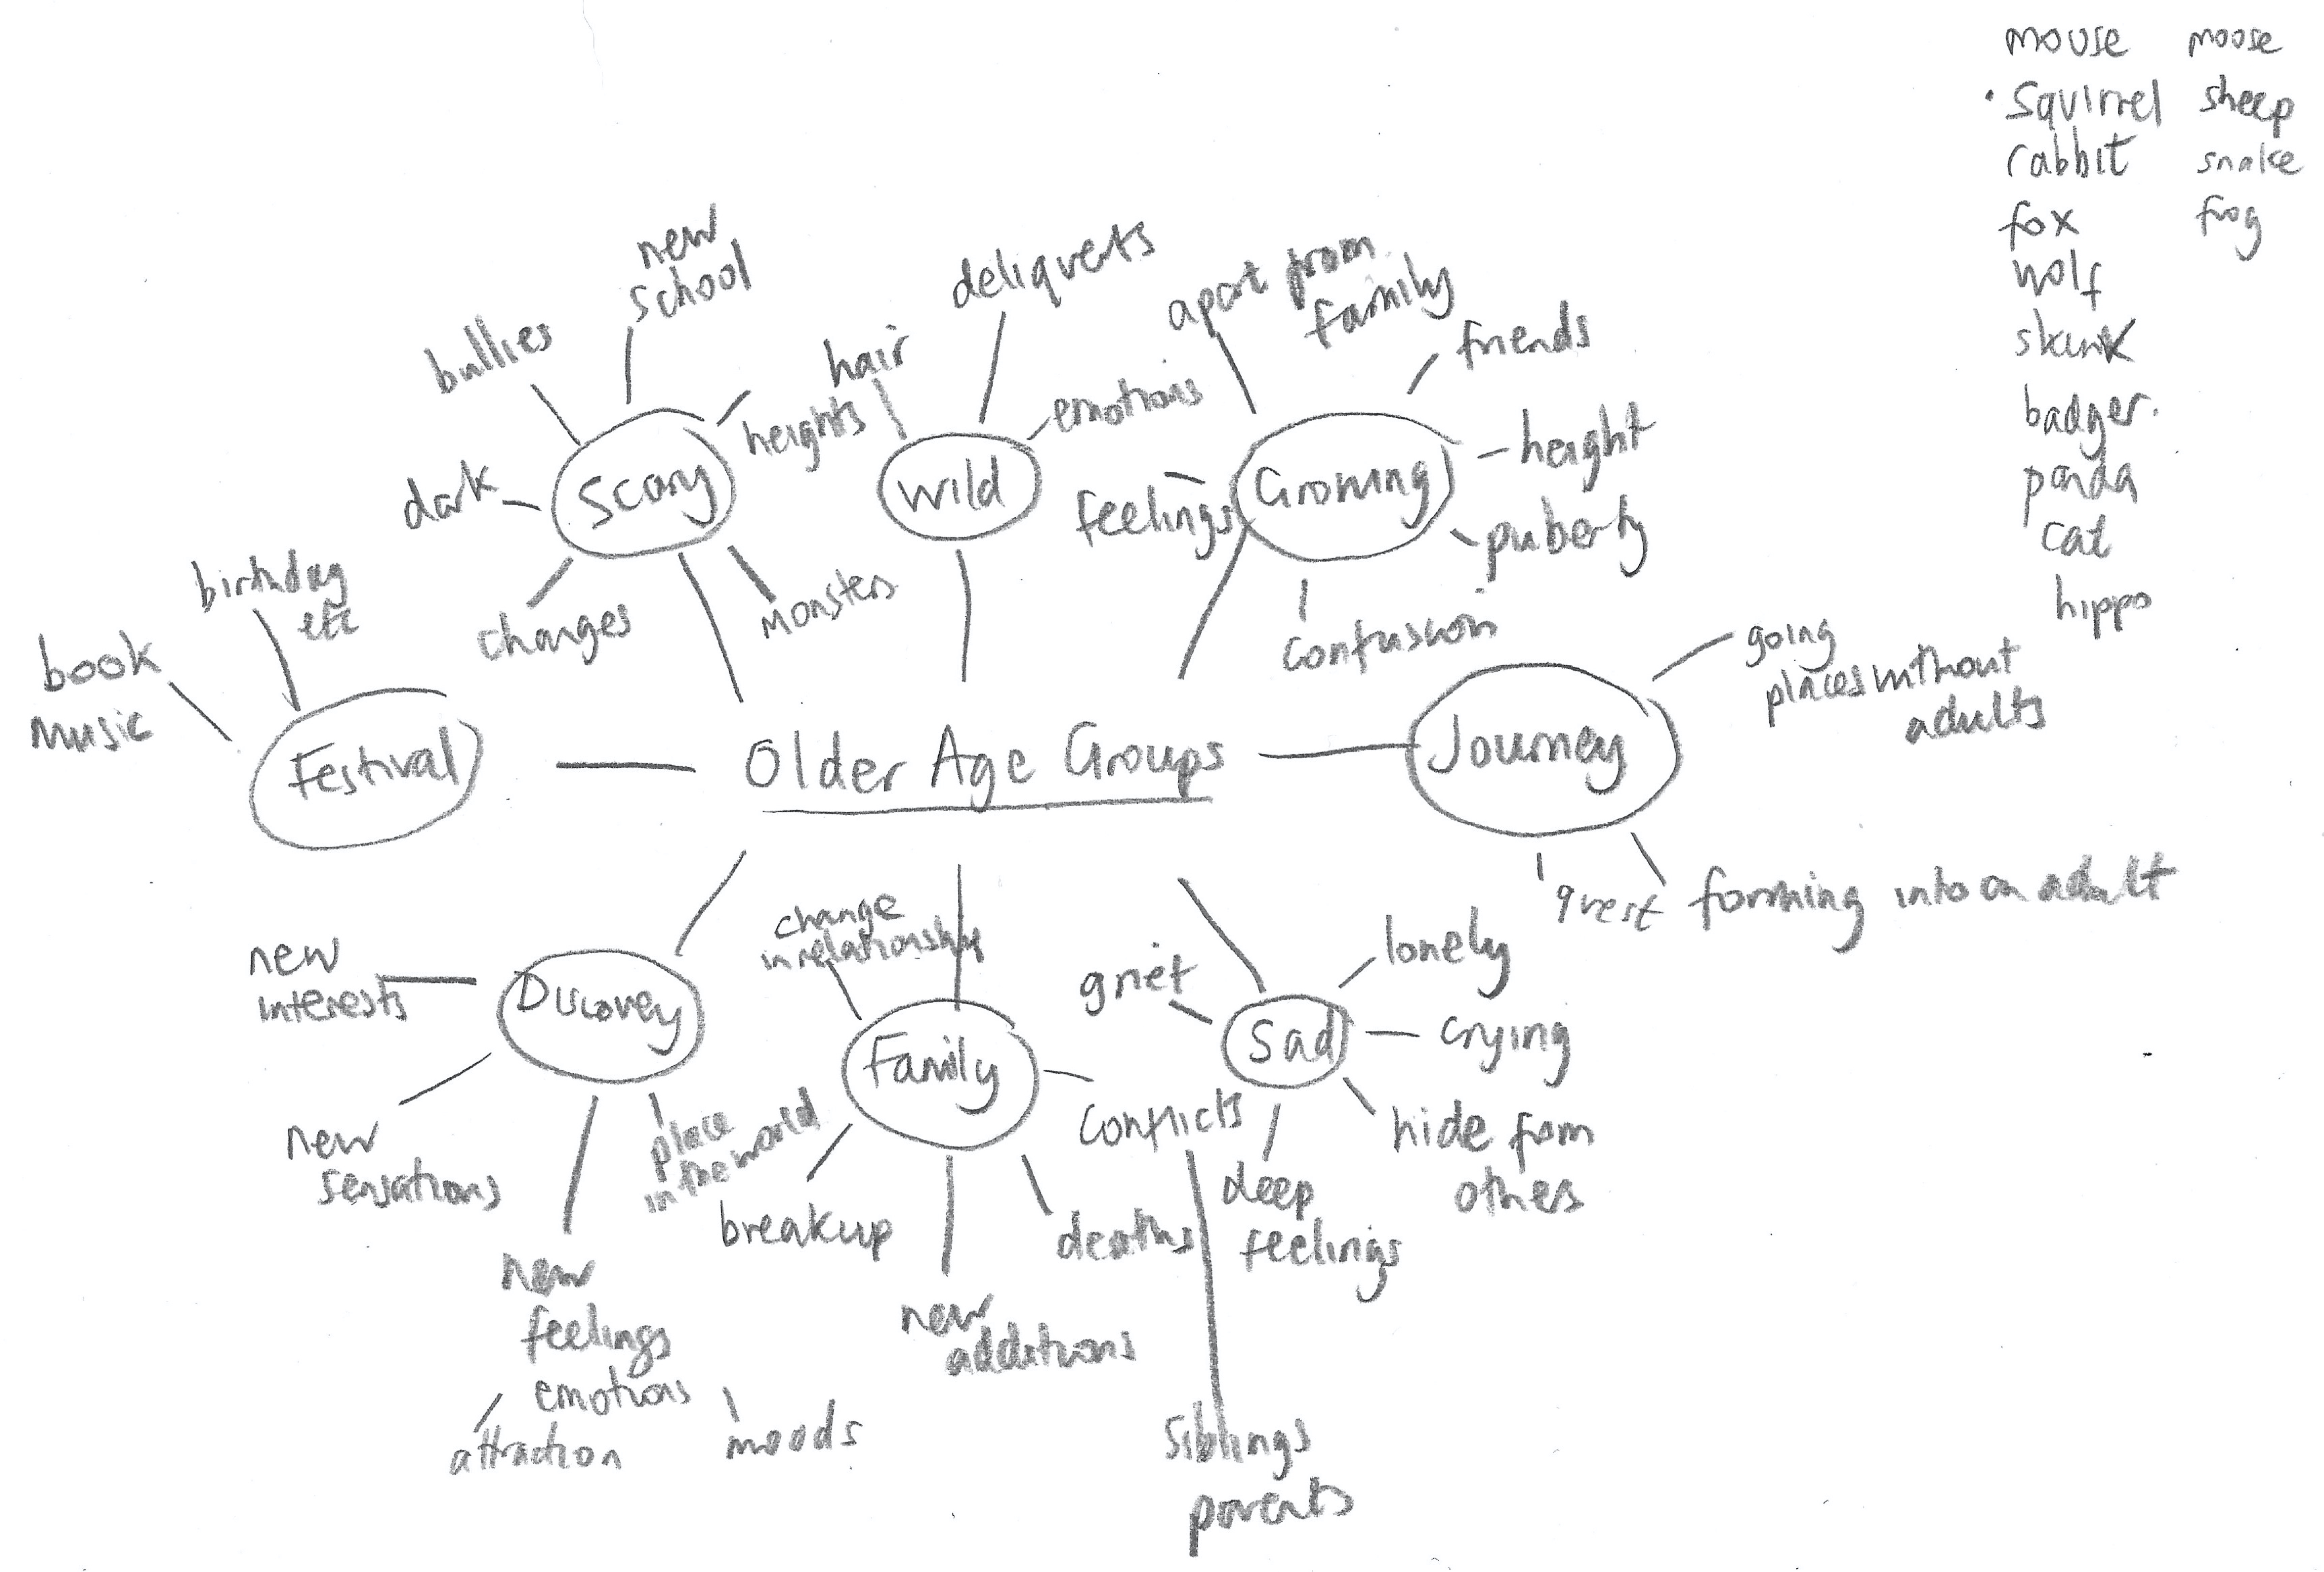 mouse
Squirrel
rabbit
fox
wolf
skunk
badger.
panda
cat
hippo
moose
sheep
snake
frog
Older Age Groups
Scary
bullies
new
school
heights
dark
changes
monsters
Wild
hair
deliquents
emotions
Growing
apart from
family
friends
height
puberty
confusion
feelings
Journey
going
places without
adults
quest
forming into an adult
Sad
grief
lonely
crying
hide from
others
deep
feelings
Family
change
in relationship
conflicts
siblings
parents
deaths
new
additions
breakup
Discovery
new
interests
new
sensations
new
feelings
emotions
attraction
moods
place
in the world
Festival
birthday
etc
book
music